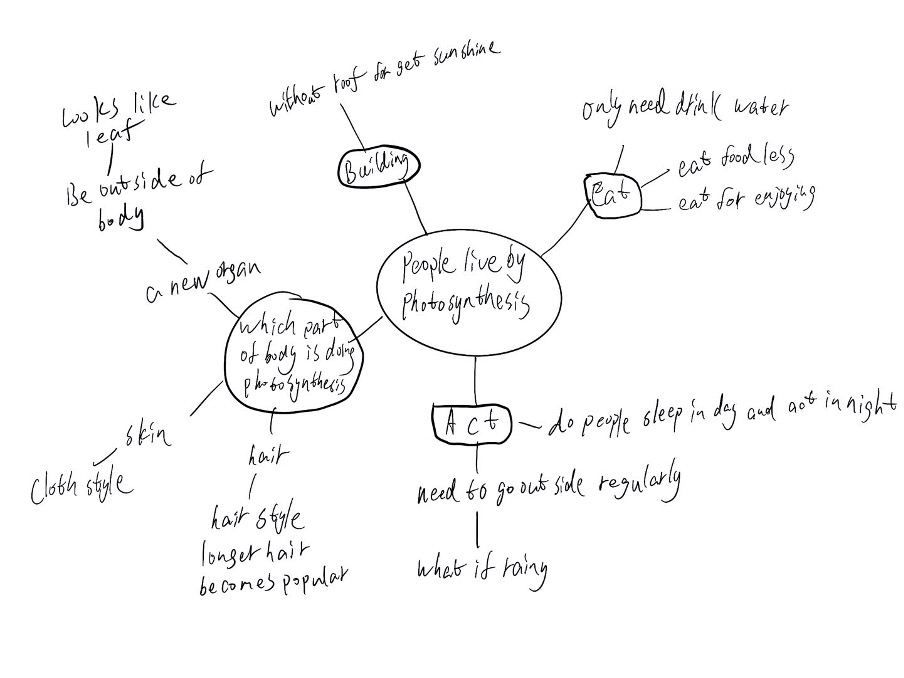 without roof for get sunshine
Looks like
leaf
only need drink water
Building
eat food less
Be outside of
body
Eat
eat for enjoying
People live by
photosynthesis
a new organ
which part
of body is doing
photosynthesis
Act
do people sleep in day and act in night
skin
hair
cloth style
need to go out side regularly
hair style
longer hair
becomes popular
what if rainy